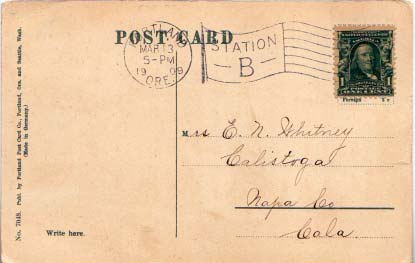 POST CARD
PORTLAND
MAR 13
5-PM
1909
ORE.
STATION
B
1
ONE CENT
Foreign
No. 7048. Publ. by Portland Post Card Co., Portland, Ore. and Seattle, Wash.
(Made in Germany.)
Mrs E. N. Whitney
Calistoga
Napa Co
Cala.
Write here.